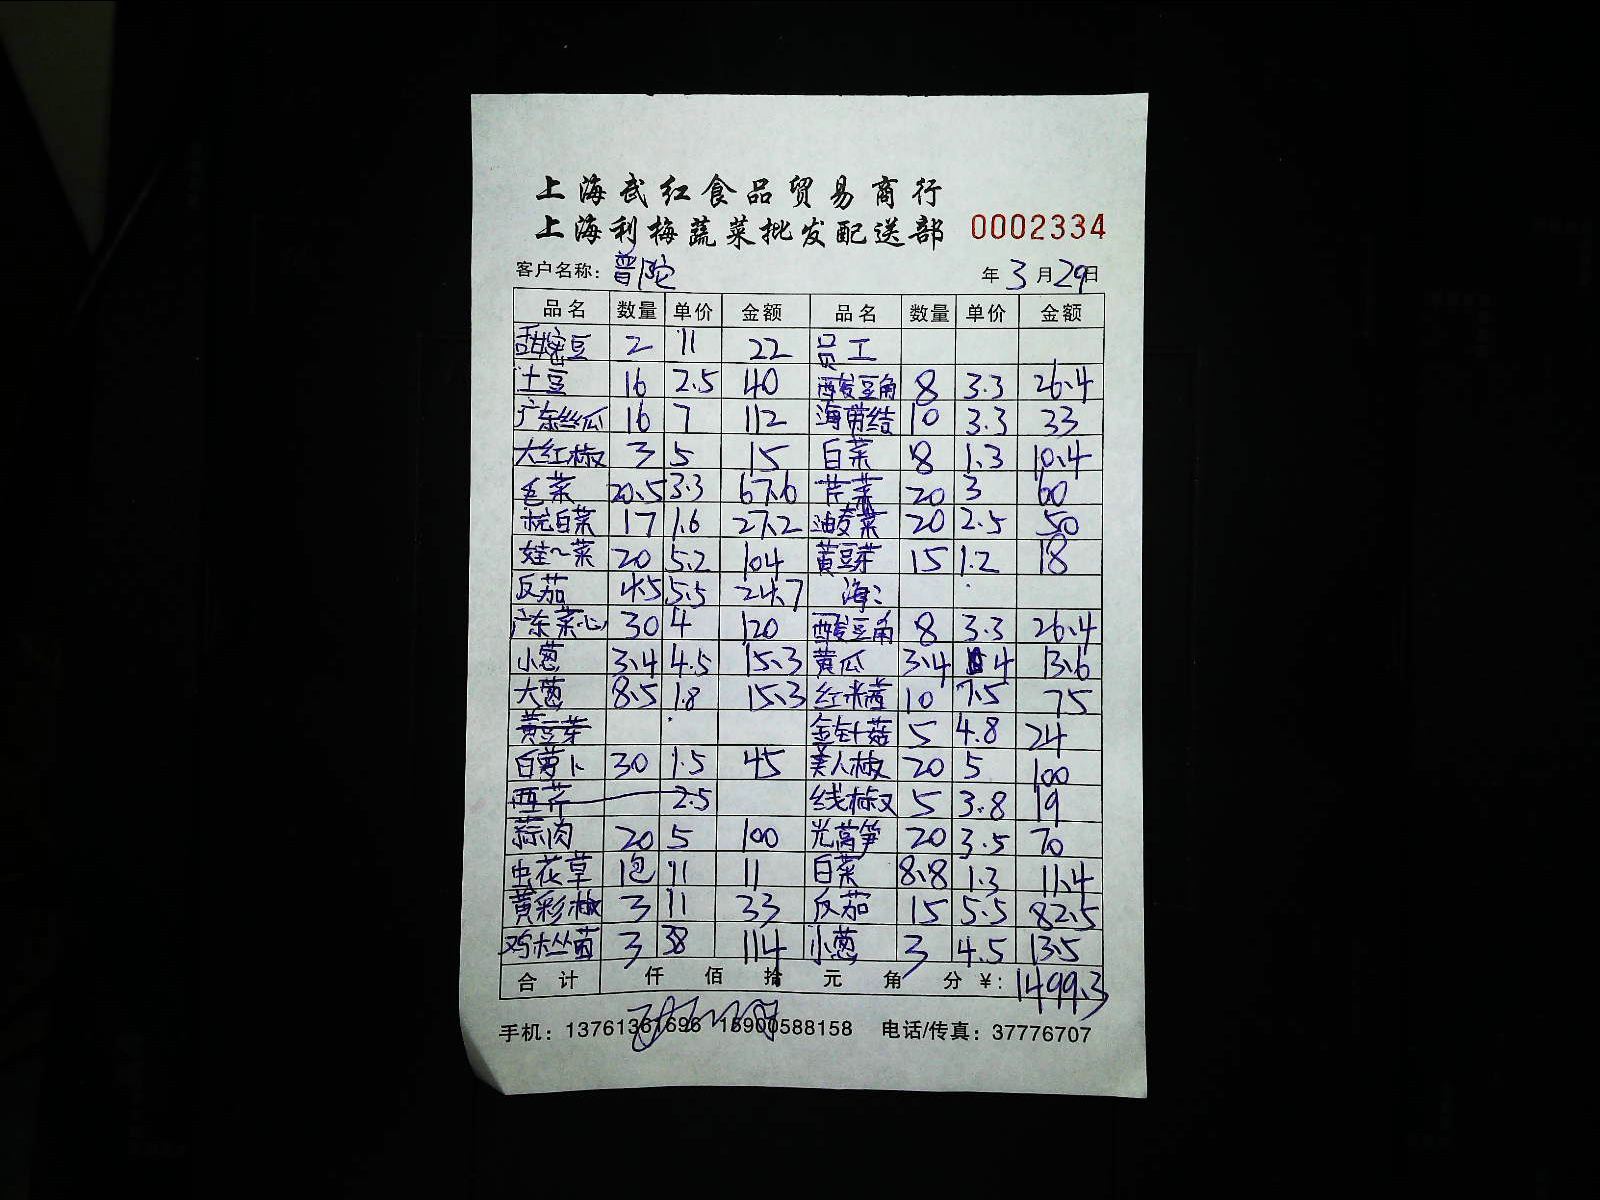 上海武红食品贸易商行
上海利梅蔬菜批发配送部 0002334
客户名称: 普陀 年 3 月 29 日
品名 数量 单价 金额 品名 数量 单价 金额
甜密豆 2 11 22 员工
土豆 16 2.5 40 酸豆角 8 3.3 26.4
广东丝瓜 16 7 112 海带结 10 3.3 33
大红椒 3 5 15 白菜 8 1.3 10.4
毛菜 20.5 3.3 67.6 芹菜 20 3 60
杭白菜 17 1.6 27.2 油麦菜 20 2.5 50
娃~菜 20 5.2 104 黄豆芽 15 1.2 18
反茄 4.5 5.5 24.7 海:
广东菜心 30 4 120 酸豆角 8 3.3 26.4
小葱 3.4 4.5 15.3 黄瓜 3.4 4 13.6
大葱 8.5 1.8 15.3 红米苋 10 7.5 75
黄豆芽 金针菇 5 4.8 24
白萝卜 30 1.5 45 美人椒 20 5 100
西芹 2.5 线椒 5 3.8 19
蒜肉 20 5 100 光莴笋 20 3.5 70
虫花草 1包 11 11 白菜 8.8 1.3 11.4
黄彩椒 3 11 33 反茄 15 5.5 82.5
鸡枞菌 3 38 114 小葱 3 4.5 13.5
合计 仟 佰 拾 元 角 分 ¥: 1499.3
手机: 13761361696 15900588158 电话/传真: 37776707